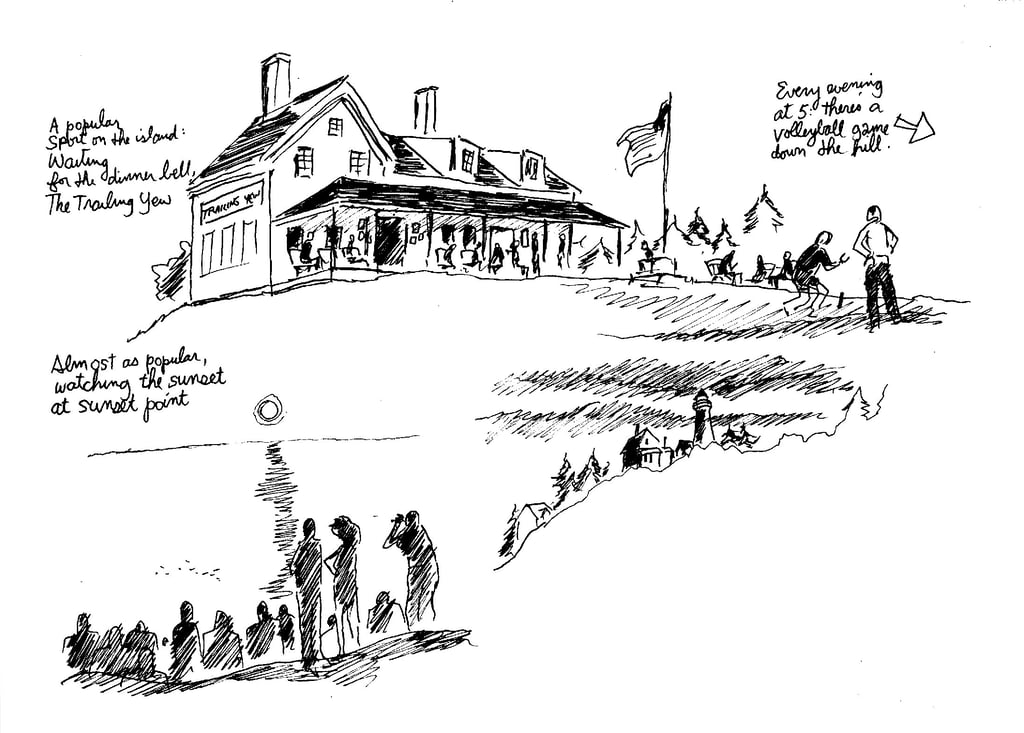 A popular
Sport on the island:
Waiting
for the dinner bell,
The Trailing Yew
TRAILING YEW
Every evening
at 5: there's a
volleyball game
down the hill.
Almost as popular,
watching the sunset
at sunset point